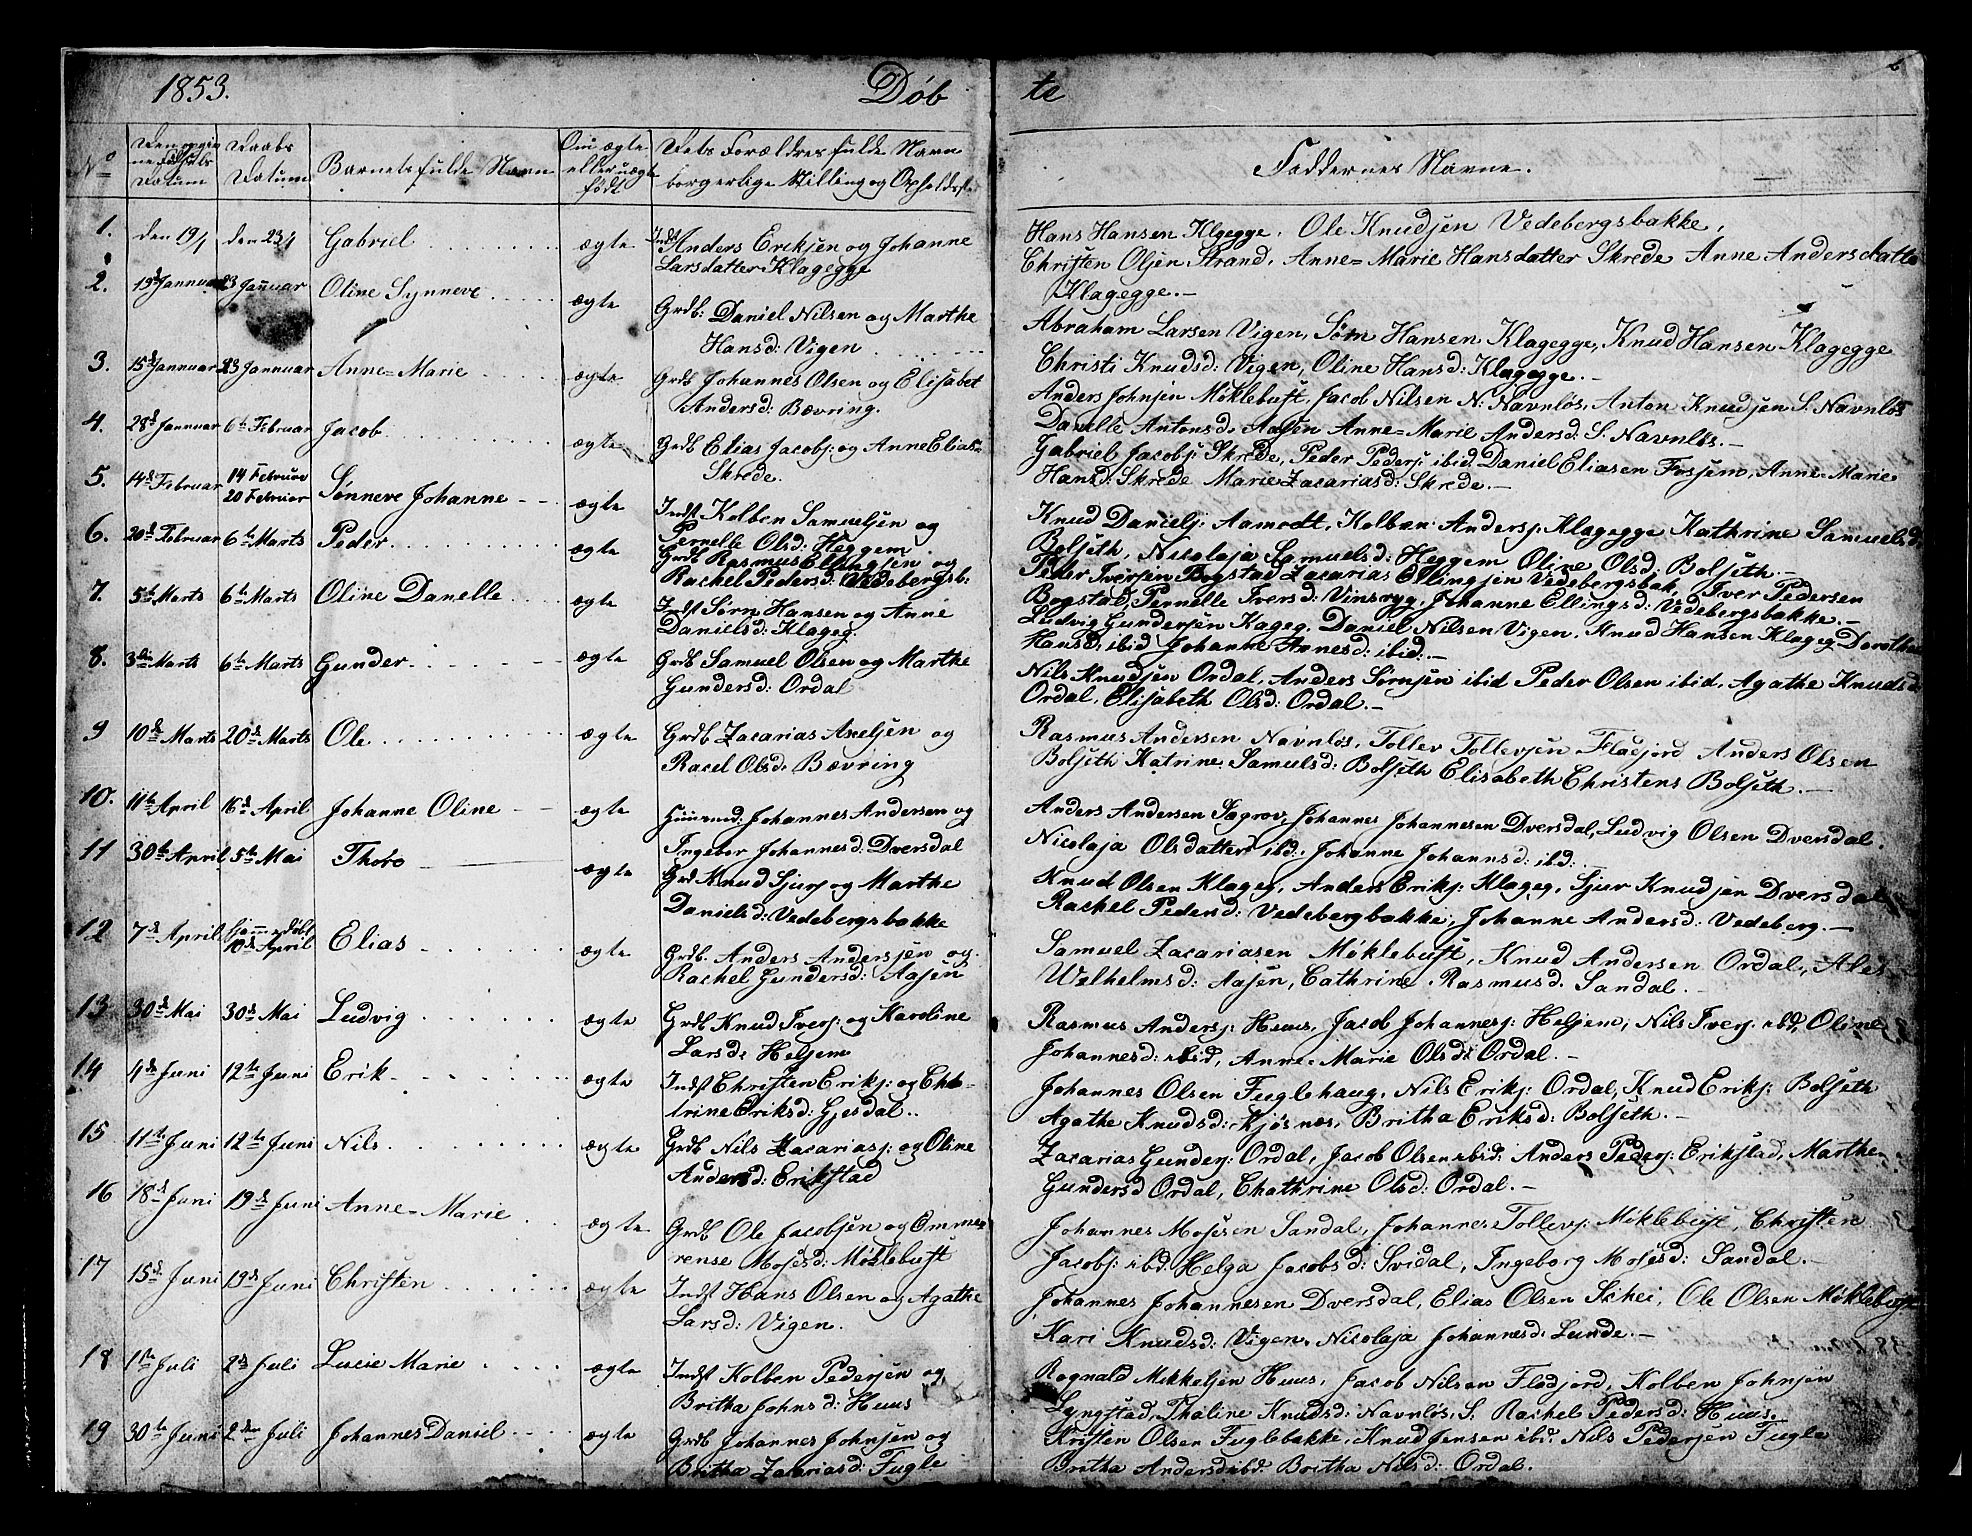 1853.
Døb
te
No
Den egne Fødsels Datum
Daabs Datum
Barnets fulde Navn
Om ægte eller uægte født
Dets Forældres fulde Navn borgerlige Stilling og Opholdsst.
Faddernes Navne.
1. den 19/1 den 23/1 Gabriel ægte Indst Anders Eriksen og Johanne
Larsdatter Klagegge
Hans Hansen Klagegge, Ole Knudsen Vedebergsbakke,
Christen Olsen Strand, Anne=Marie Hansdatter Skrede Anne Andersdatter
Klagegge.–
2. 19d Januar 23 Januar Oline Synneve ægte Grdb: Daniel Nilsen og Marthe
Hansd: Vigen
Abraham Larsen Vigen, Sørn Hansen Klagegge, Knud Hansen Klagegge
Christi Knudsd: Vigen, Oline Hansd: Klagegge.–
3. 15d Januar 23 Januar Anne=Marie ægte Grdb Johannes Olsen og Elisabet
Andersd: Bævring.
Anders Johnsen Møklebust, Jacob Nilsen N: Navnløs, Anton Knudsen S. Navnløs
Danelle Antonsd: Aasen Anne=Marie Andersd: S. Navnløs.–
4. 28d Januar 6te Februar Jacob ægte Grdb Elias Jacobs: og Anne Elias=
Skrede.
Gabriel Jacobs: Skrede, Peder Peders: ibid Daniel Eliasen Fossem, Anne=Marie
Hansd: Skrede Marie Zacariasd: Skrede.–
5. 14d Februar 14 Februar
20 Februar Sønneve Johanne ægte Indst Kolben Samuelsen og
Pernelle Olsd: Heggem
Knud Daniels: Aamodt, Kolban Anders: Klagegge Kathrine Samuelsd:
Bolseth, Nicolaja Samuelsd: Heggem, Oline Olsd: Bolseth.–
6. 20d Februar 6te Marts Peder ægte Grdb Rasmus Ellingsen og
Rachel Pedersd: Vedebergsb:
Peder Iversen Bogstad Zacarias Ellingsen Vedebergsbak, Iver Pedersen
Bogstad, Pernelle Iversd: Vinsryg, Johanne Ellingsd: Vedebergsbakke.–
7. 5te Marts 6te Marts Oline Danelle ægte Indst Sørn Hansen og Anne
Danielsd: Klageg.
Ludvig Gundersen Kageg, Daniel Nilsen Vigen, Knud Hansen Klageg Dorothea
Hansd: ibid Johanne Arnesd: ibid:–
8. 3die Marts 6te Marts Gunder ægte Grdb Samuel Olsen og Marthe
Gundersd: Ordal
Nils Knudsen Ordal, Anders Sørnsen ibid Peder Olsen ibid, Agathe Knudsd:
Ordal, Elisabeth Olsd: Ordal.–
9 10de Marts 20de Marts Ole ægte Grdb Zacarias Axelsen og
Racel Olsd: Bævring
Rasmus Andersen Navnløs, Tollev Tollevsen Flodjord Anders Olsen
Bolseth Katrine Samulsd: Bolseth Elisabeth Christens Bolseth.–
10. 11te April 16de April Johanne Oline ægte Huusmd: Johannes Andersen og
Ingebor Johannesd: Dversdal
Anders Andersen Søgrov, Johannes Johannesen Dversdal, Ludvig Olsen Dversdal.
Nicolaja Olsdatter ibd: Johanne Johannsd: ibd:
11 30te April 5te Mai Thoro ægte Grd Knud Sjurs og Marthe
Danielsd: Vedebergsbakke
Knud Olsen Klageg, Anders Eriks: Klageg, Sjur Knudsen Dversdal
Rachel Pedersd: Vedebergbakke, Johanne Andersd: Vedeberg.–
12 7de April hjemmedøbt
10de April Elias ægte Grdb. Anders Andersen og
Rachel Gundersd: Aasen
Samuel Zacariasen Møklebust, Knud Andersen Ordal,
Welhelmsd: Aasen, Cathrine Rasmusd. Sandal.
13 30de Mai 30de Mai Ludvig ægte Grdb Knud Ivers: og Karoline
Larsd: Heljem
Rasmus Anders: Huus, Jacob Johannes: Heljem, Nils Ivers: ibd, Oline
Johannesd: ibid, Anne=Marie Olsd: Ordal.–
14 4de Juni 12te Juni Erik ægte Indst Christen Eriks: og Cha=
trine Eriksd: Gjesdal.
Johannes Olsen Fuglehaug, Nils Eriks: Ordal, Knud Eriks: Bolseth
Agathe Knudsd: Kjøsnæs, Britha Eriksd: Bolseth.–
15 11te Juni 12te Juni Nils ægte Grdb Nils Zacarias: og Oline
Andersd: Erikstad
Zacarias Gunders: Ordal, Jacob Olsen ibid: Anders Peders: Erikstad, Marthe
Gundersd Ordal, Chathrine Olsd: Ordal.–
16 18de Juni 19de Juni Anne=Marie ægte Grdb Ole Jacobsen og Emme=
rense Mosesd: Møklebust
Johannes Mosesen Sandal, Johannes Tollevs: Møklebust, Christen
Jacobs: ibd: Helga Jacobsd: Svidal, Ingeborg Mosesd: Sandal.–
17 15de Juni 19de Juni Christen ægte Indst Hans Olsen og Agathe
Larsd: Vigen.
Johannes Johannesen Dversdal, Elias Olsen Skei, Ole Olsen Møklebust
Kari Knudsd: Vigen, Nicolaja Johannesd: Lunde.–
18 1te Juli 2de Juli Lucie Marie ægte Indst Kolben Pedersen og
Britha Johnsd: Huus
Rognald Mikkelsen Huus, Jacob Nilsen Flodjord, Kolben Johnsen
Lyngstad, Thaline Knudsd: Navnløs, S. Rachel Pedersd: Huus.
19 30te Juni 2den Juli Johannes Daniel ægte Grdb Johannes Johnsen og
Britha Zacariasd: Fugle
Kristen Olsen Fuglebakke, Knud Jensen ibd. Nils Pedersen Fugle
Britha Andersd ibd: Britha Nilsd: Ordal.